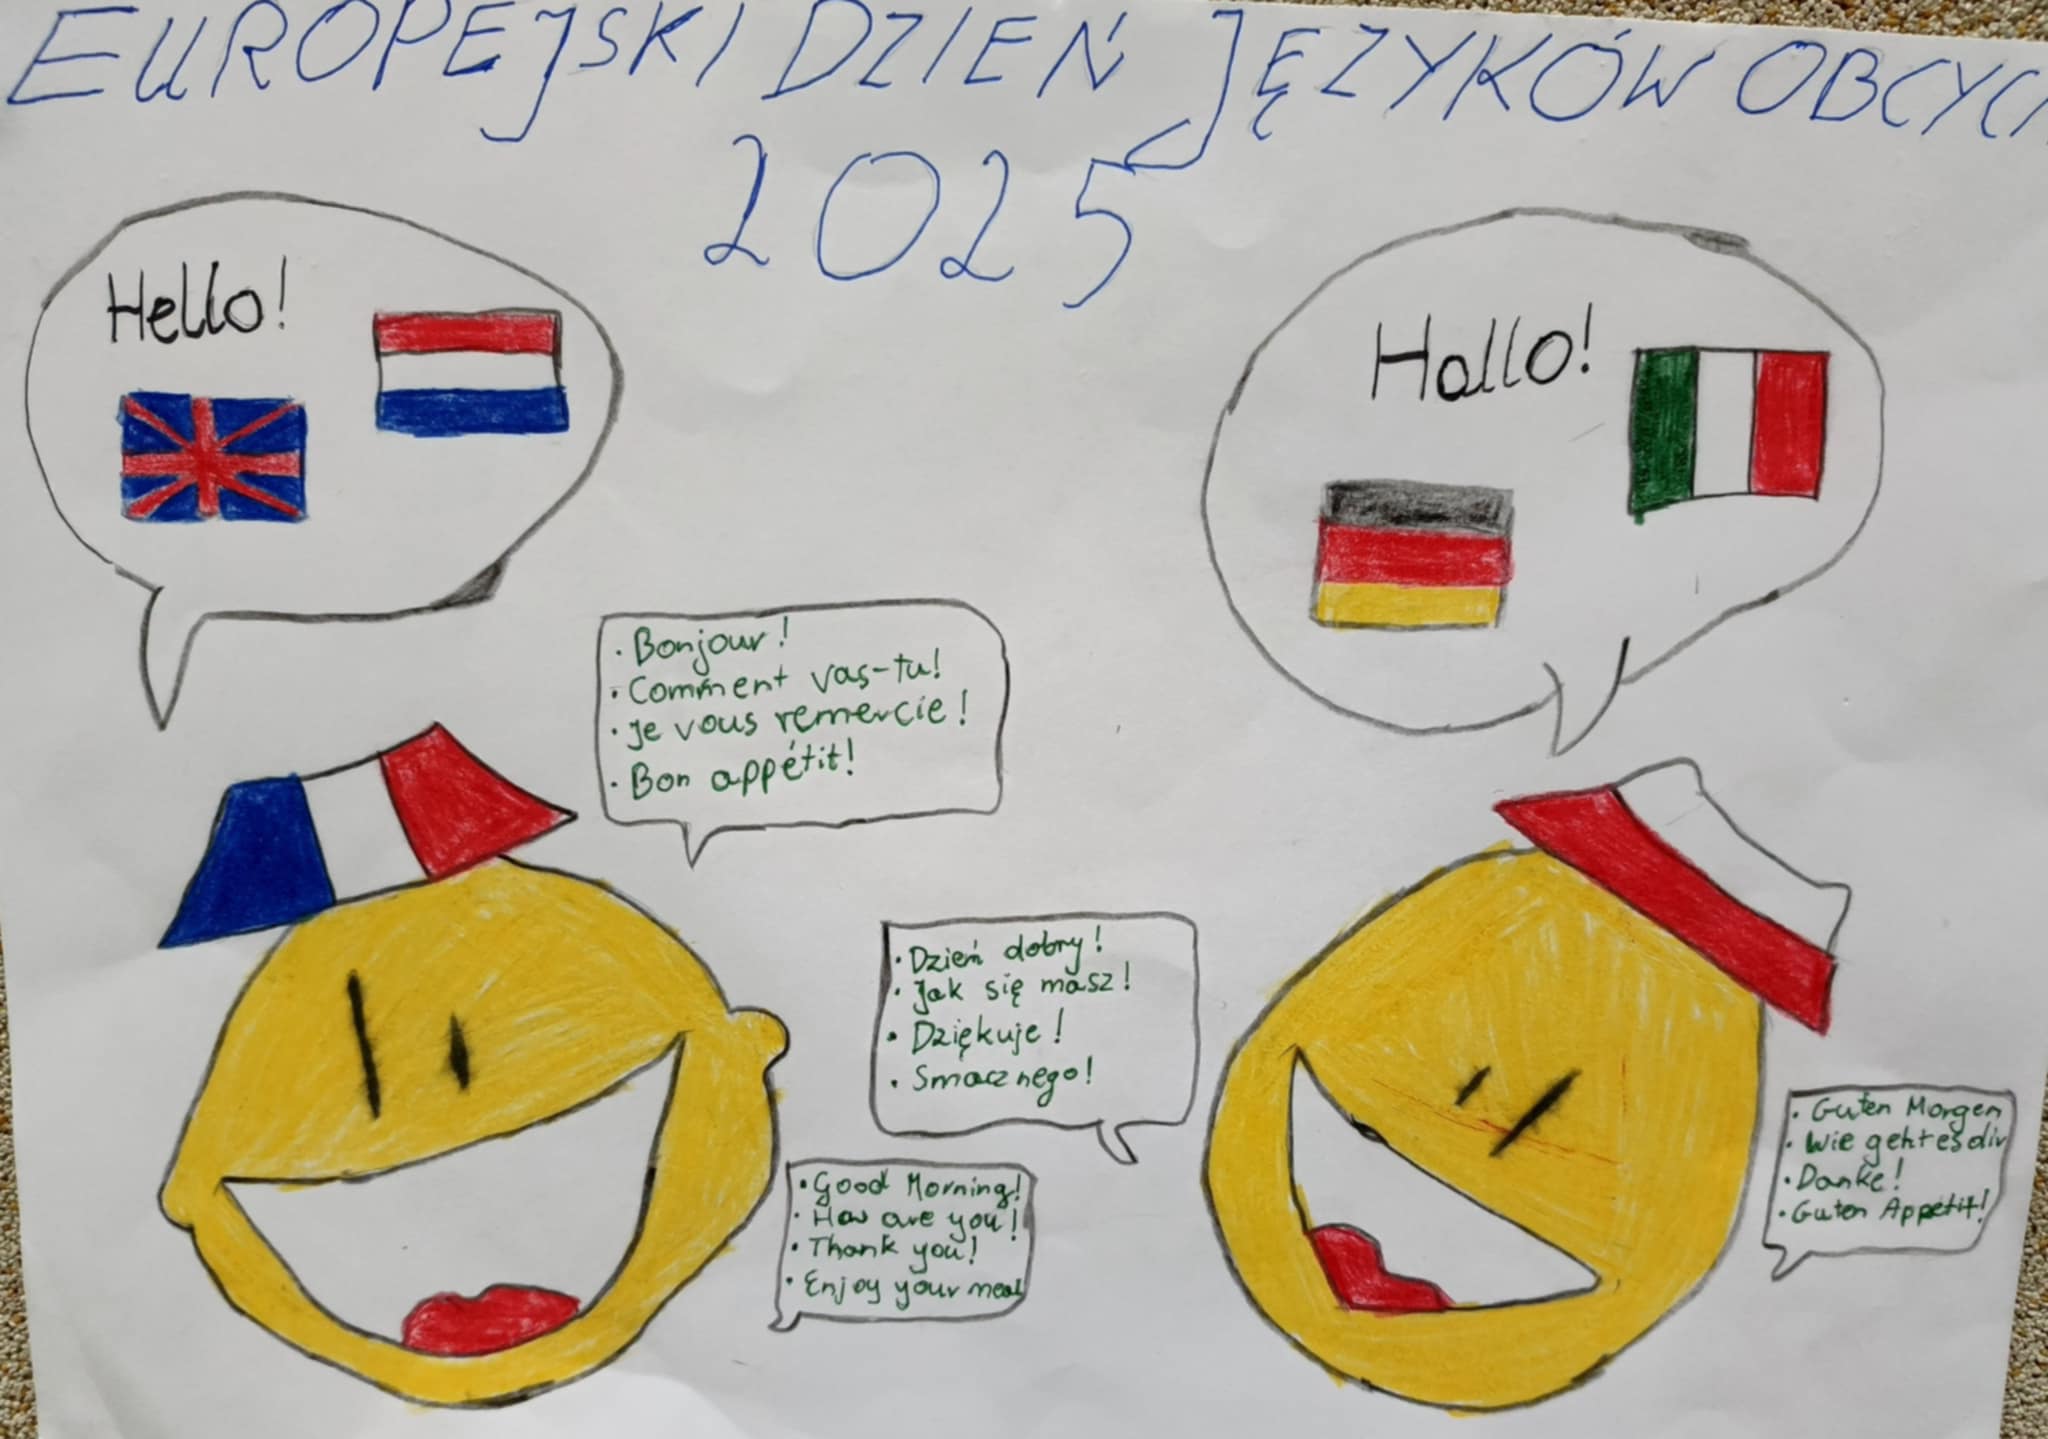 EUROPEJSKI DZIEŃ JĘZYKÓW OBCYCH
2025
Hello!
Hallo!
• Bonjour!
• Comment vas-tu!
• Je vous remercie!
• Bon appétit!
• Dzień dobry!
• Jak się masz!
• Dziękuje!
• Smacznego!
• Good Morning!
• How are you!
• Thank you!
• Enjoy your meal
• Guten Morgen
• Wie geht es dir
• Danke!
• Guten Appétit!